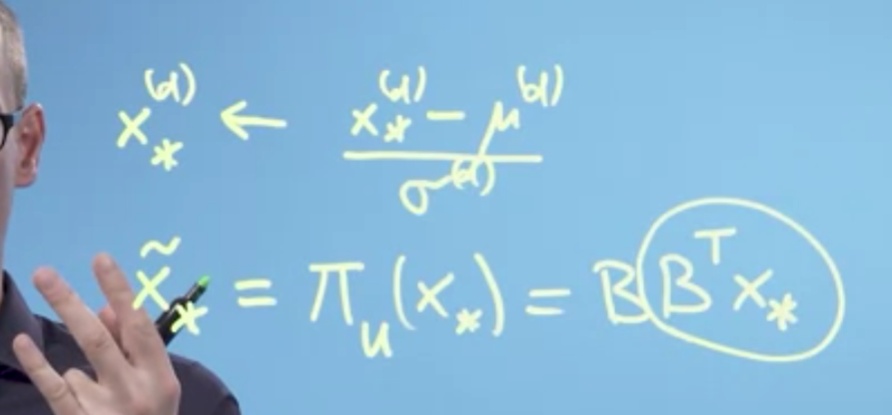 x_*^(d) ← (x_*^(d) − μ^(d)) / σ^(d)
x̃_* = π_u(x_*) = BB^T x_*